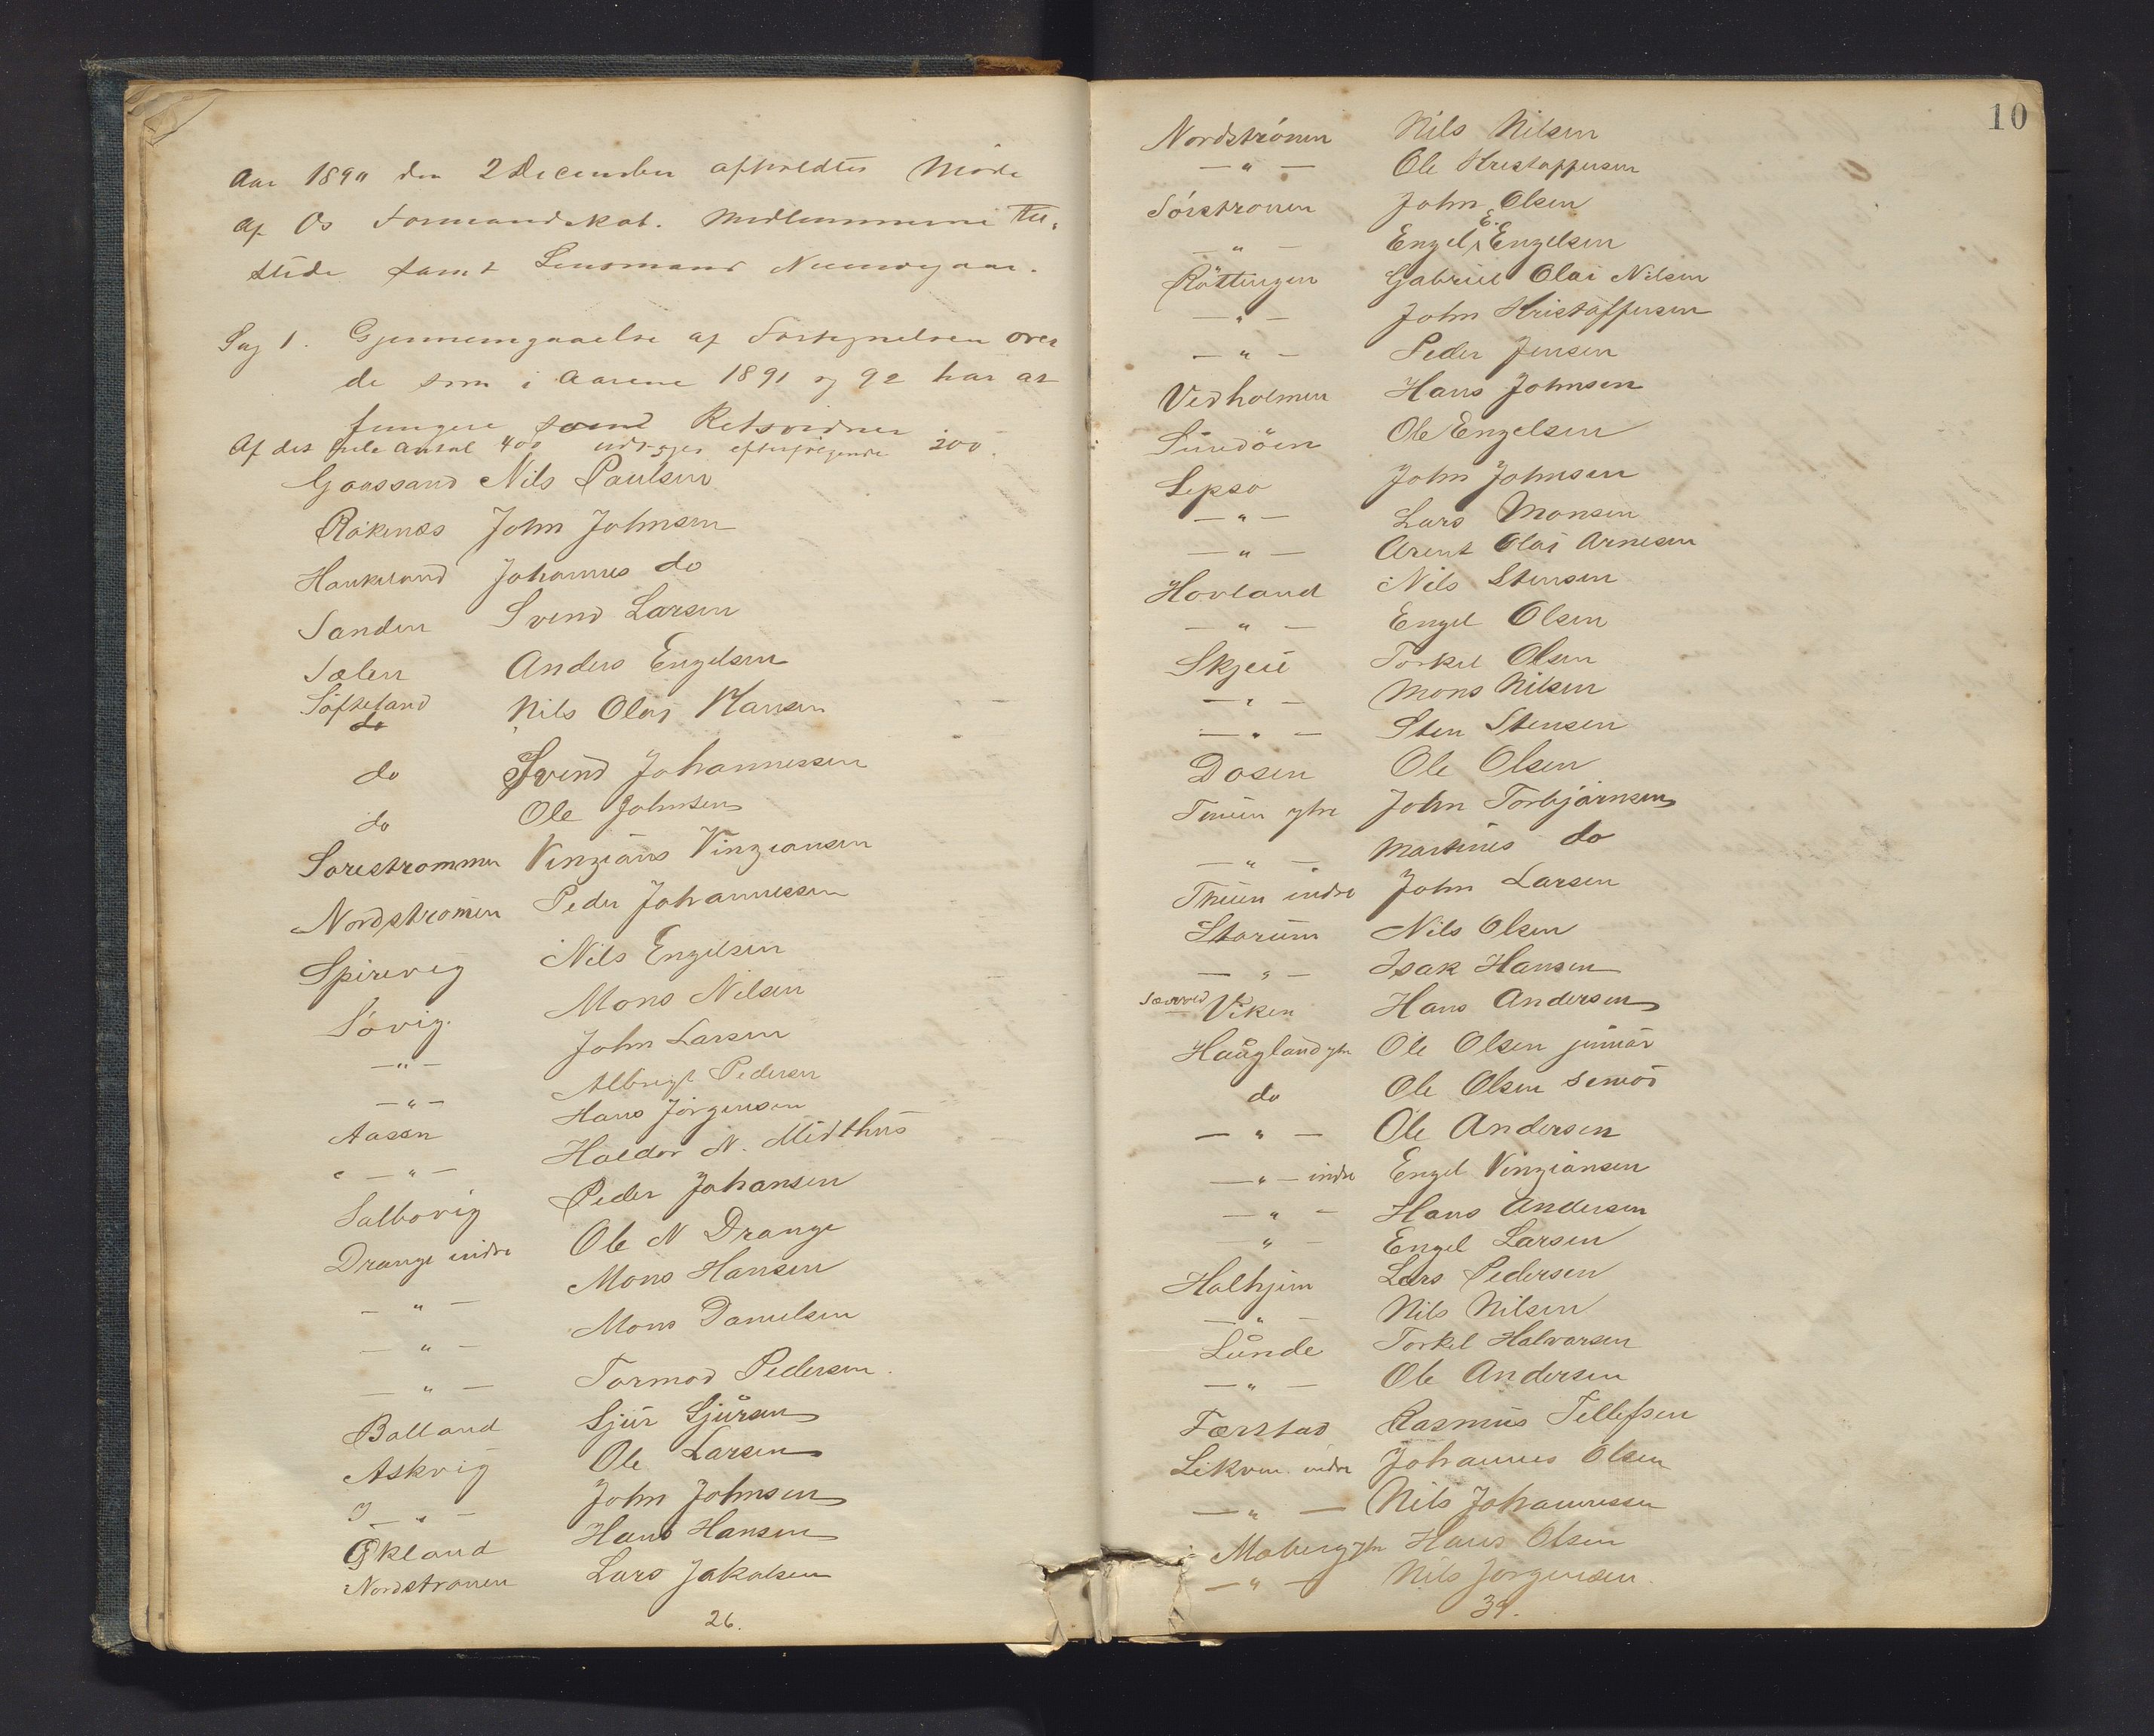 Aar 1890 den 2 December afholdtes Møde
af Os Formandskab. Medlemmerne Til-
stede samt Lensmand
Sag 1. Gjennemgaaelse af Fortegnelsen over
de som i Aarene 1891 og 92 har at
fungere som Retsvidner
Af det hele Antal 400 udtages efterfølgende 200.
Gaassand Nils Paulsen
Røkenæs John Johnsen
Haukeland Johannes do
Sanden Svend Larsen
Sælen Anders Engelsen
Søfteland Nils Olai Hansen
do
do Svend Johannessen
do Ole Johnsen
Sørestrømmen Vingians Vingiansen
Nordstrømen Peder Johannessen
Spirevig Nils Engelsen
Søvig. Mons Nilsen
—"— John Larsen
—"— Albrigt Pedersen
Aasen Hans Jørgensen
—"— Haldor N. Midthus
Salbovig Peder Johansen
Drange indre Ole N Drange
—"— Mons Hansen
—"— Mons Danielsen
—"— Tormod Pedersen.
Balland Sjur Sjursen
Askvig Ole Larsen
—"— John Johnsen
Økland Hans Hansen
Nordstrønen Lars Jakobsen
26.
10
Nordstrønen Nils Nilsen
—"— Ole Kristoffersen
Sørstrønen John Olsen
—"— Engel E. Engelsen
Røttingen Gabriel Olai Nilsen
—"— John Kristoffersen
—"— Peder Jensen
Vedholmen Hans Johnsen
Sundøen Ole Engelsen
Lepsø John Johnsen
—"— Lars Monsen
—"— Arent Olai Arnesen
Hovland Nils Stensen
—"— Engel Olsen
Skjeie Torkel Olsen
—"— Mons Nilsen
—"— Sten Stensen
Døsen Ole Olsen
Tuen ytre John Torbjørnsen
—"— Martinus do
Thuen indre John Larsen
Storum Nils Olsen
—"— Isak Hansen
Særvold Viken Hans Andersen
Haugland ytre Ole Olsen junior
do Ole Olsen senior
—"— Ole Andersen
—"— indre Engel Vingiansen
—"— Hans Andersen
—"— Engel Larsen
Halhjem Lars Pedersen
—"— Nils Nilsen
Lunde Torkel Halvorsen
—"— Ole Andersen
Færstad Rasmus Tellefsen
Lekven indre Johannes Olsen
—"— Nils Johannessen
Moberg ytre Hans Olsen
—"— Nils Jørgensen.
39.